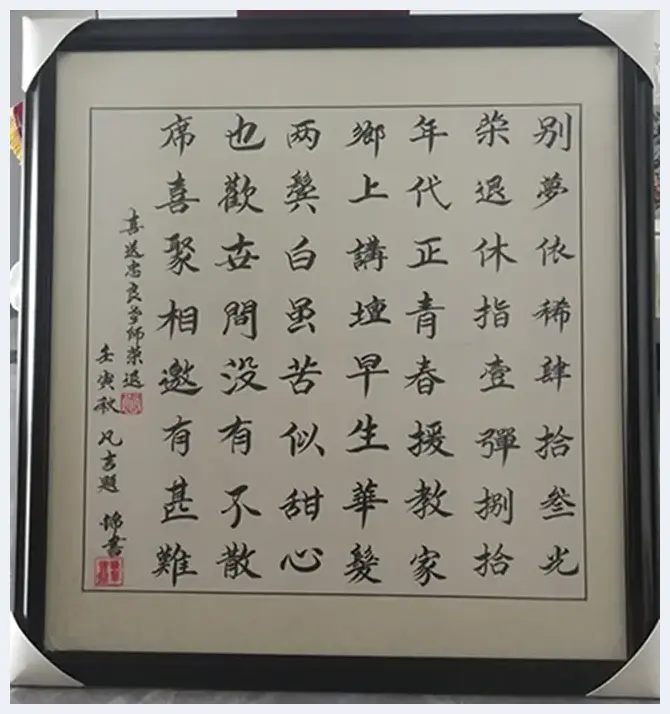 別夢依稀肆拾叁光
荣退休指壹彈捌拾
年代正青春援教家
鄉上講壇早生華髮
两鬓白虽苦似甜心
也歡世間没有不散
席喜聚相邀有甚難
喜送忠良老师荣退
壬寅秋 凡言題 锦書